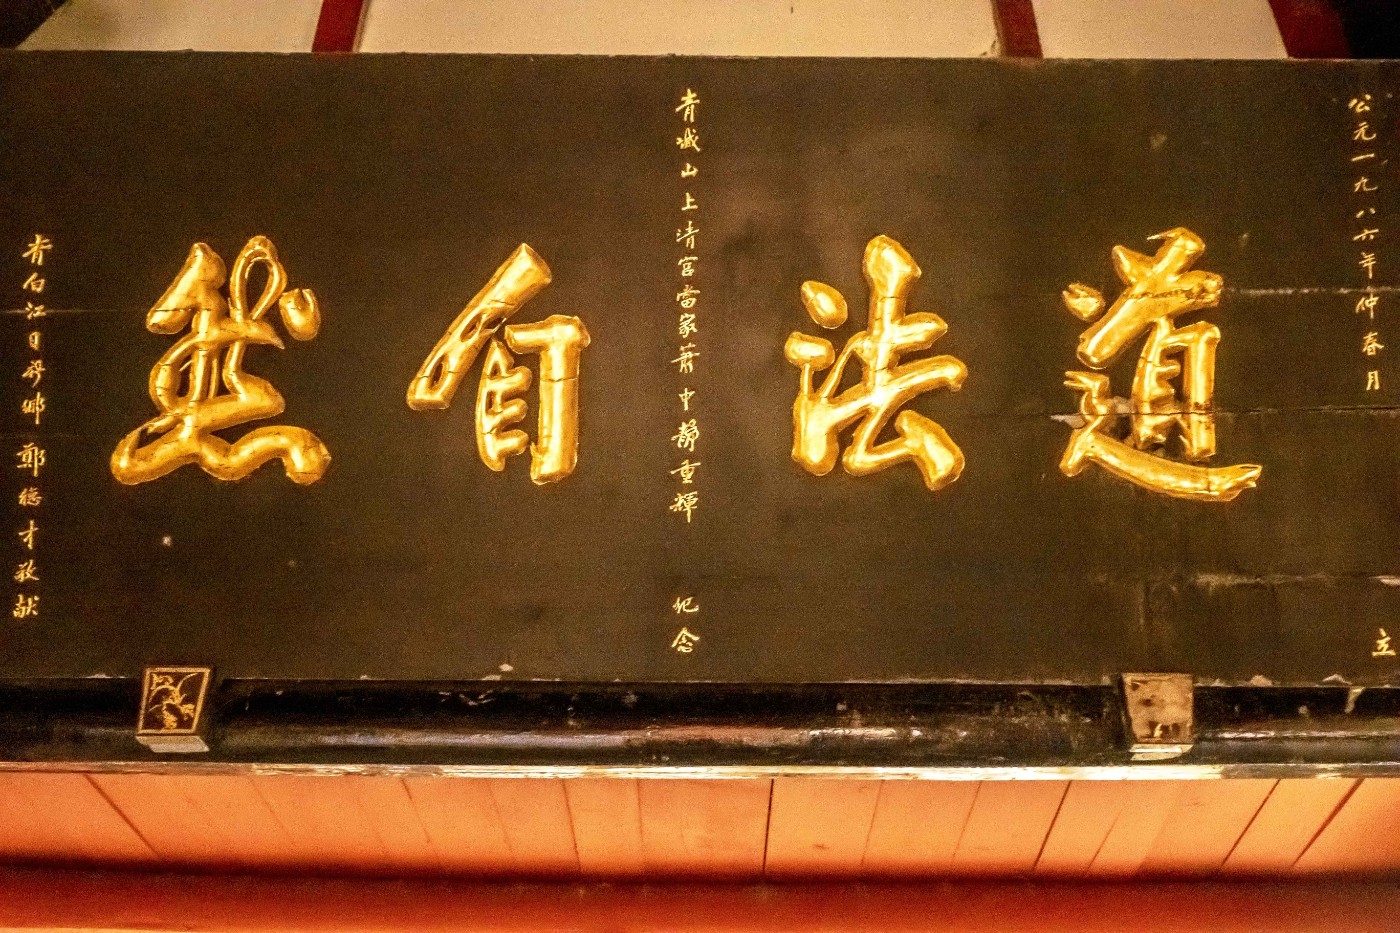 公元一九八六年仲春月 立
道法自然
青城山上清宮當家蕭中靜重輝 纪念
青白江日新鄉鄭德才敬献